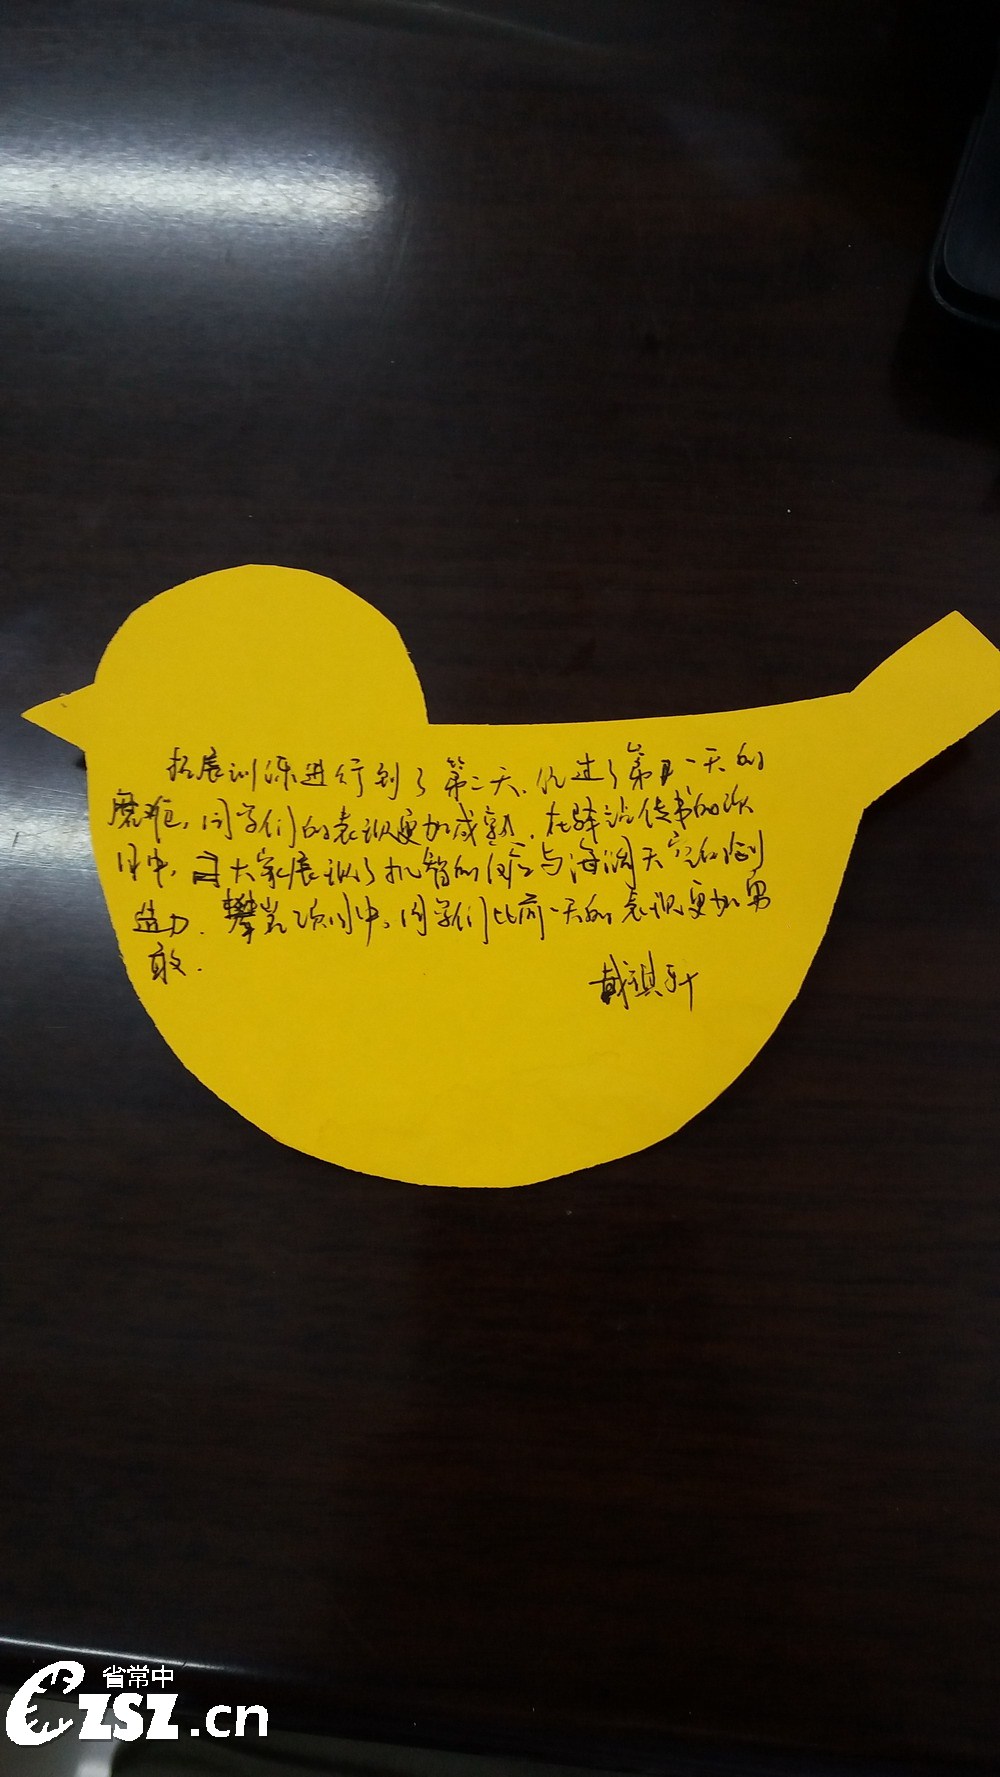 拓展训练进行到了第二天.经过了第一天的
磨难,同学们的表现更加成熟.在驿站传书的项
目中,大家展现了机智的 与海阔天空的创
造力.攀岩项目中,同学们比前一天的表现更加勇
敢.
戴祺轩
省常中
CZSZ.cn